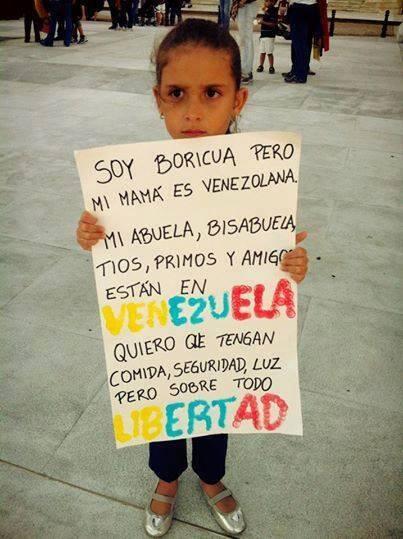 SOY BORICUA PERO
MI MAMÁ ES VENEZOLANA.
MI ABUELA, BISABUELA,
TIOS, PRIMOS Y AMIGOS
ESTÁN EN
VENEZUELA
QUIERO QUE TENGAN
COMIDA, SEGURIDAD, LUZ
PERO SOBRE TODO
LIBERTAD